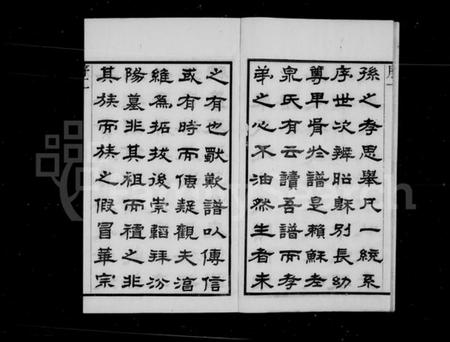 孫之孝思舉凡一統系
序世次辨昭穆別長幼
尊卑胥於譜是賴穌老
泉氏有云讀吾譜而孝
弟之心不油然生者未
之有也歐歎譜以傳信
或有時而傳疑觀夫滬
維為拓拔後崇韜拜汾
陽墓非其祖而禮之非
其族而族之假冒華宗